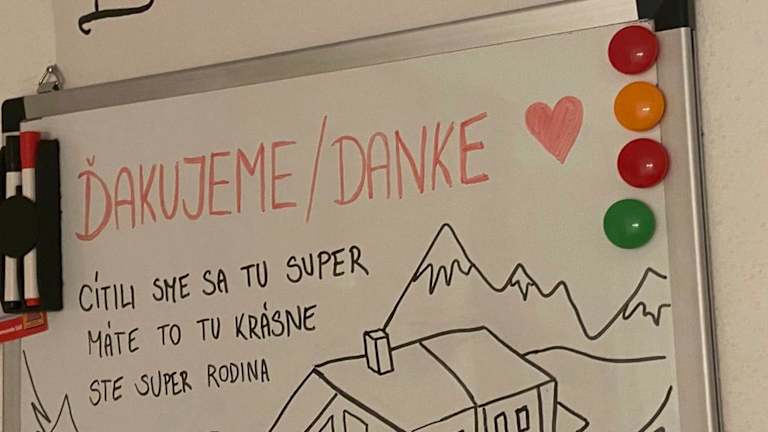 ĎAKUJEME/DANKE
CÍTILI SME SA TU SUPER
MÁTE TO TU KRÁSNE
STE SUPER RODINA